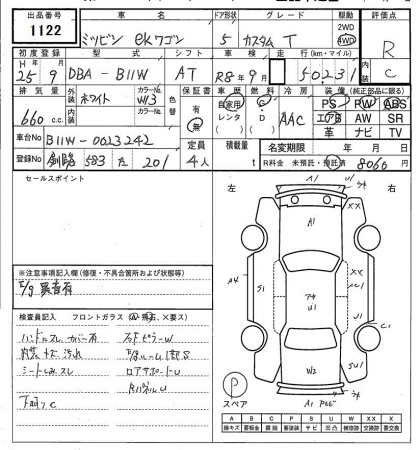 出品番号 車名 ドア形状 グレード 駆動 評価点
1122 ミツビシ ekワゴン 5 カスタム T 2WD 4WD R
初度登録 型式 シフト 車検 走行 (km・マイル) 内 C
H 25年 9月 DBA-B11W AT R8年9月 50231
排気量 外装 ホワイト カラーNo. W13 色替 保証書 車歴 燃料 冷房 装備 (純正部品に限る)
660 c.c. 内装 カラーNo. 有 無 自家用 レンタ G・D AAC PS PW ABS
エアB AW SR
革 ナビ TV
車台No B11W-0023242 定員 積載量 名変期限 年 月 日
登録No 釧路 583 た 201 4人 t R料金 未預託・預託済 8060円
セールスポイント
左 右
※注意事項記入欄 (修復・不具合箇所および状態等)
E/g異音有
検査員記入 フロントガラス (A・飛石、×要ス)
ハンドルスレ カバー有
内装キズ汚れ
シートシミスレ
下廻りC
ロアサポートU
BパネルU
A1 U1 XX
A1
A4 S1 アキ U1 XX U1
W2 C1 SU1
P スペア
A 線キズ B 要板金 C 腐蝕 P 要塗装 S サビ U 凹凸 W 補修跡 X 交換要 XX 交換跡